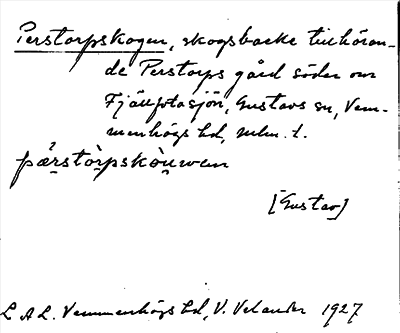 Perstorpskogen, skogsbacke tillhöran-
de Perstorps gård söder om
Fjällfotasjön, Gustavs sn, Vem-
menhögs hd, mlm. l.
pǻrstòrpskòuwen
[Gustav]
L A L. Vemmenhögs hd, V. Velander 1927